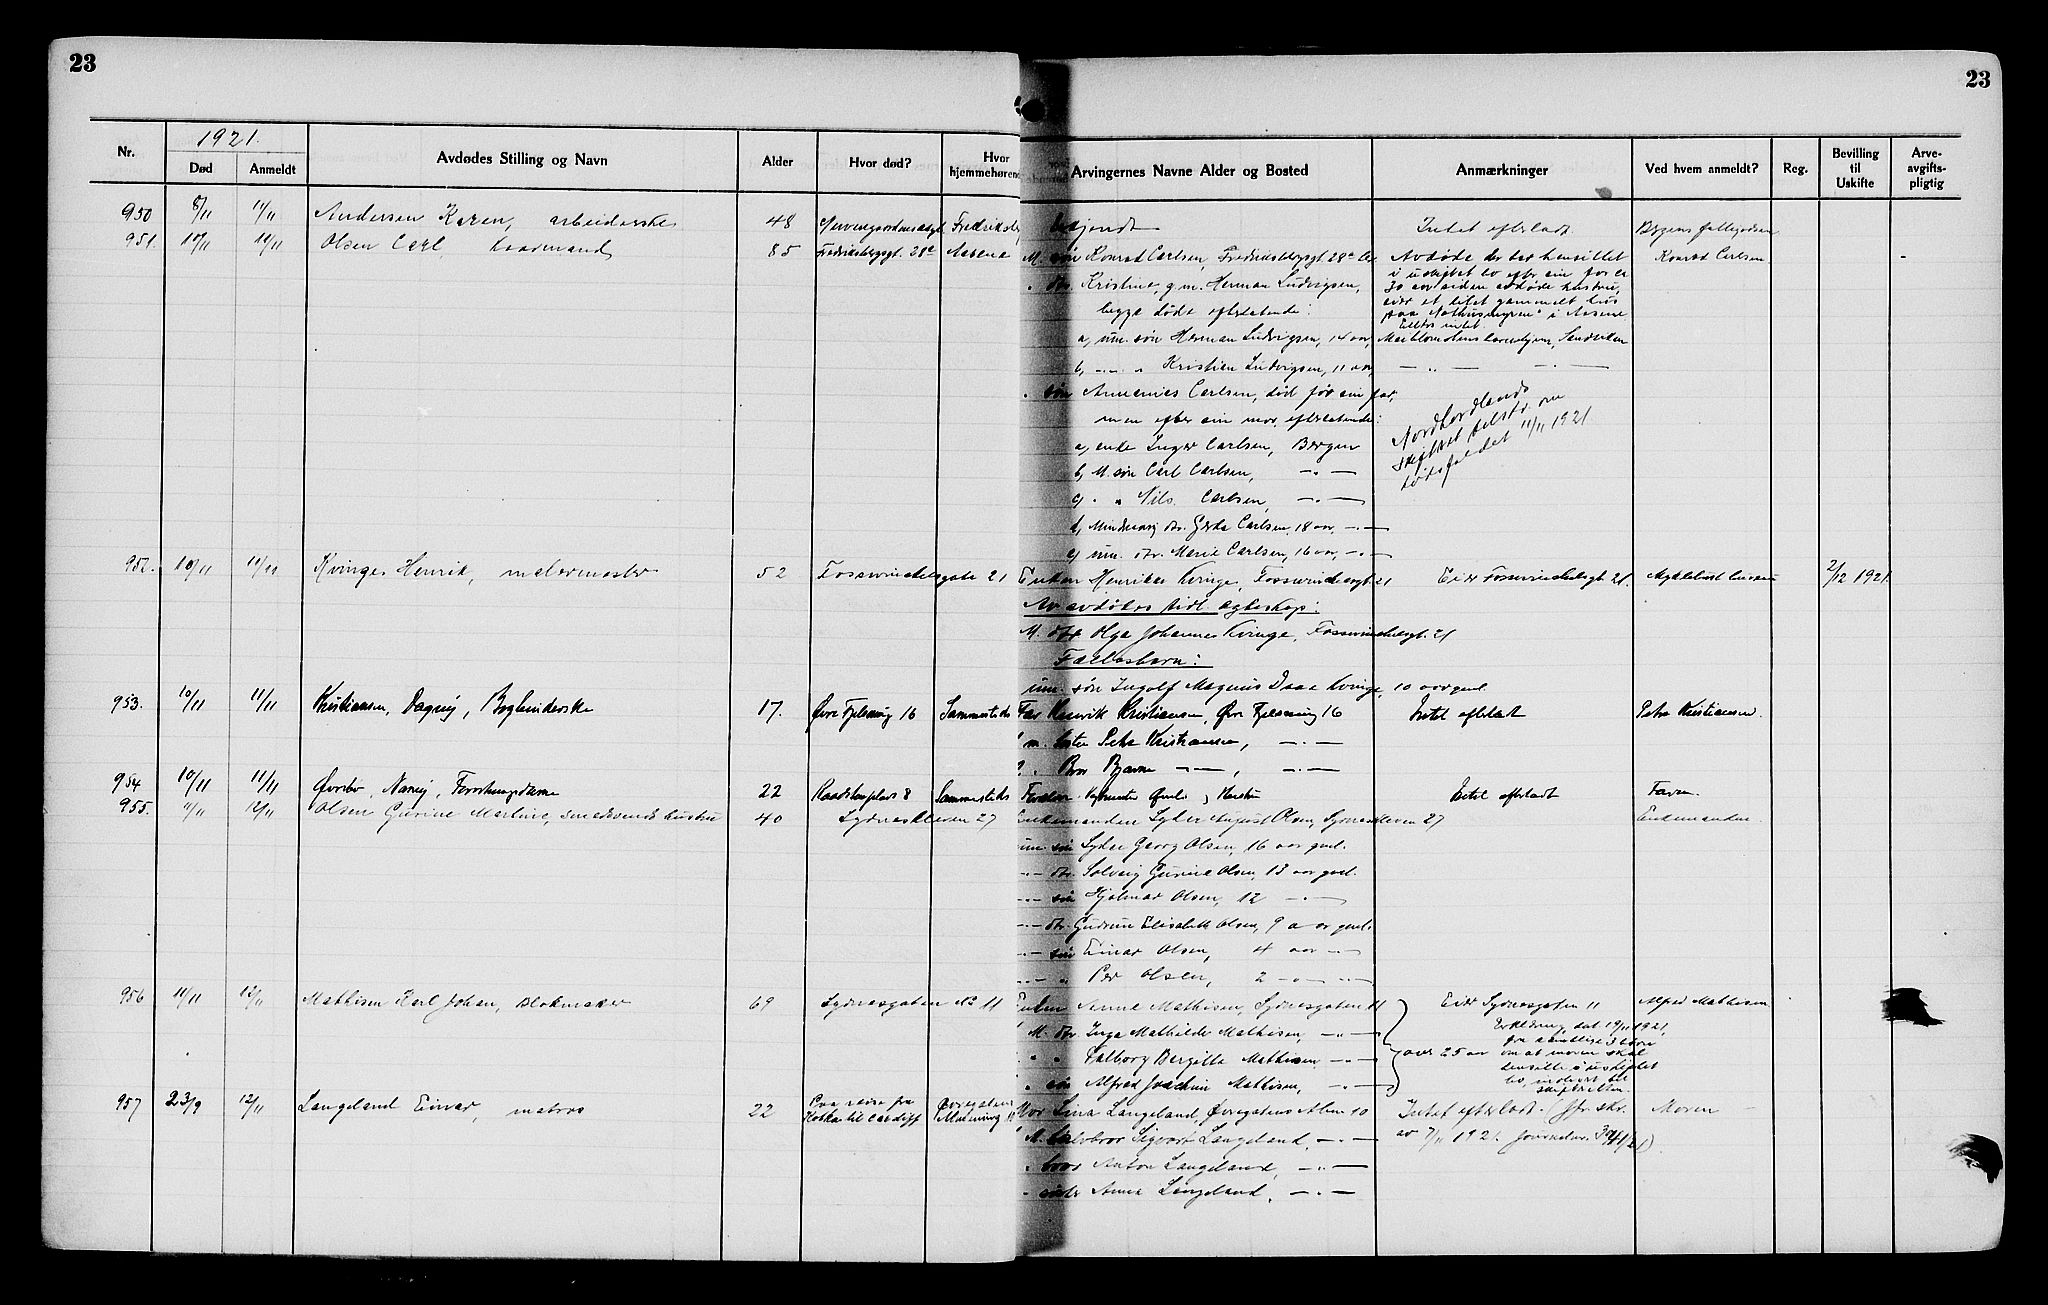 23
23
1921.
Nr. Død Anmeldt Avdødes Stilling og Navn Alder Hvor død? Hvor hjemmehøren Arvingernes Navne Alder og Bosted Anmærkninger Ved hvem anmeldt? Reg. Bevilling til Uskifte Arve-avgifts-pligtig
950 8/11 11/11 Andersen Karen, arbeiderske 48 Intet efterladt.
951. 10/11 11/11 Olsen Carl, 85 Fredriksbergsgt. 28a M. søn Konrad Carlsen, Fredriksbergsgt 28a Avdøde der har hensittet Konrad Carlsen
i uskiftet bo efter sin for ca
" dtr. Kristine, g.m. Herman Ludvigsen, 30 aar siden avdøde hustru,
eier et litet gammelt hus
begge døde efterlatende:
Ellers intet.
a, um. søn Herman Ludvigsen, 14 aar, Sandviken
b, — " — " Kristian Ludvigsen, 11 aar, — " — — " —
" søn Carlsen, død før sin far,
men efter sin mor, efterlatende:
Nordhordlands
a, enke Inger Carlsen, Bergen
om
11/11 1921
b, M. søn Carl Carlsen, — " —
c, " " Nils Carlsen, — " —
d, Mindreaarig dtr. Carlsen, 18 aar, — " —
e, um. dtr. Marie Carlsen, 16 aar, — " —
952. 10/11 11/11 Kvinge Henrik, malermester 52 Fosswinckelsgate 21 Enken Kvinge, Fosswinckelsgt. 21 Eier Fosswinckelsgt. 21. 2/12 1921.
Av avdødes tidl. egteskap:
M. dtr Olga Johanne Kvinge, Fosswinckelsgt. 21
Fællesbarn:
um. søn Ingolf Magnus Daae Kvinge, 10 aar gml.
953. 10/11 11/11 Kristiansen, Dagny, Bogbinderske 17. Øvre Fjeldsmug 16 Sammesteds Far Henrik Kristiansen, Øvre Fjeldsmug 16 Intet efterladt Petra Kristiansen.
m. søster Petra Kristiansen, — " —
" Bror Bjarne — " —, — " —
954 10/11 11/11 Øvrebø, Nanny, 22 Raadstuplads 8 Sammesteds Intet efterladt Faren.
955. 11/11 12/11 Olsen Gurine Martine, smedsvends hustru 40 Sydneskleven 27 Enkemanden August Olsen, Sydneskleven 27 Enkemanden.
um. søn Georg Olsen, 16 aar gml.
— " — dtr. Solveig Gurine Olsen, 13 aar gml.
— " — søn Hjalmar Olsen, 12 — " —
— " — dtr. Gudrun Elisabeth Olsen, 9 aar gml.
— " — søn Einar Olsen, 4 aar — " —
— " — " Per Olsen, 2 — " —
956 11/11 12/11 Mathisen Karl Johan, Blokmaker 69 Sydnesgaten No 11 Enken Anne Mathisen, Sydnesgaten 11 Eier Sydnesgaten 11 Alfred Mathisen
M. dtr Inga Mathilde Mathisen, — " — Erklæring, dat. 19/11 1921,
fra samtlige 3 børn
" " Valborg Bergitte Mathisen, — " — over 25 aar om at moren skal
hensitte i uskiftet
" søn Alfred Joachim Mathisen, — " — bo, indlevert til
skifteretten.
957 23/9 12/11 Langeland Einar, matros 22 Paa reise fra Kotka til Cardiff Mor Lina Langeland, Øvregatens Alm. 10 Intet efterladt. (Jfr. skr. Moren
M. Halvbror Sigvart Langeland, — " — av 7/11 1921. Journalnr.
" bror Anton Langeland, — " —
" søster Anna Langeland, — " —